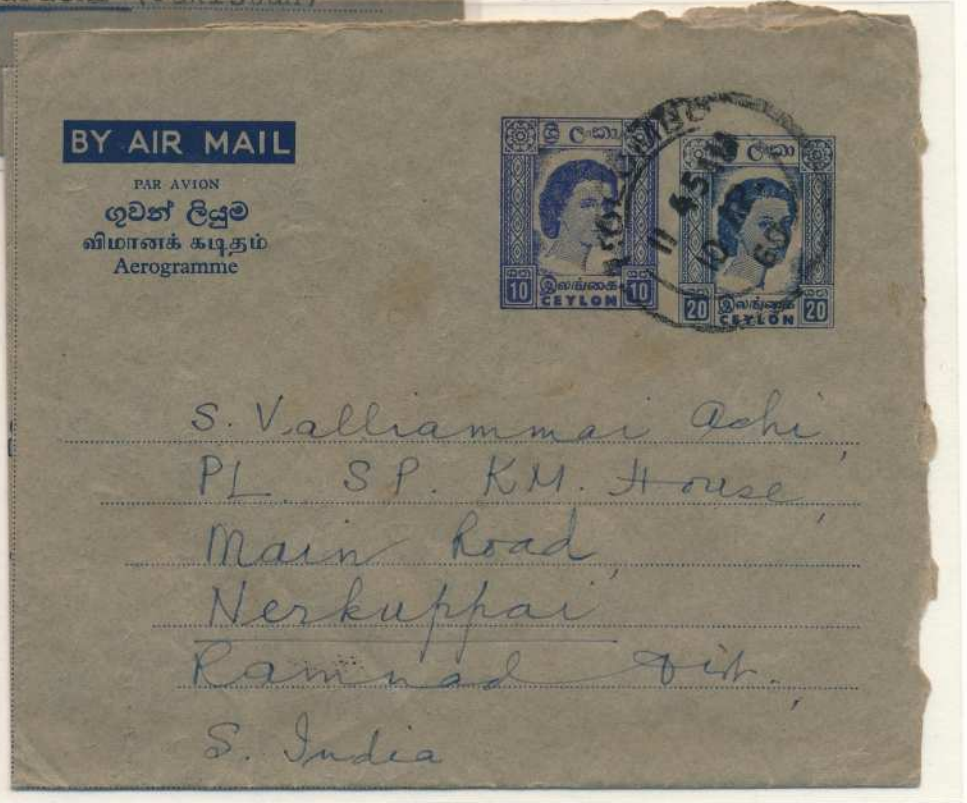 (Pakistan)
BY AIR MAIL
PAR AVION
ගුවන් ලියුම
விமானக் கடிதம்
Aerogramme
ශ්‍රී ලංකා
ශත 10 இலங்கை ශත 10
CEYLON
ලංකා
ශත 20 இலங்கை ශත 20
CEYLON
COLOMBO
11 45 AM
10
60
S. Valliammai Achi,
PL. SP. KM. House,
Main Road,
Nerkuppai
Ramnad Dit.,
S. India